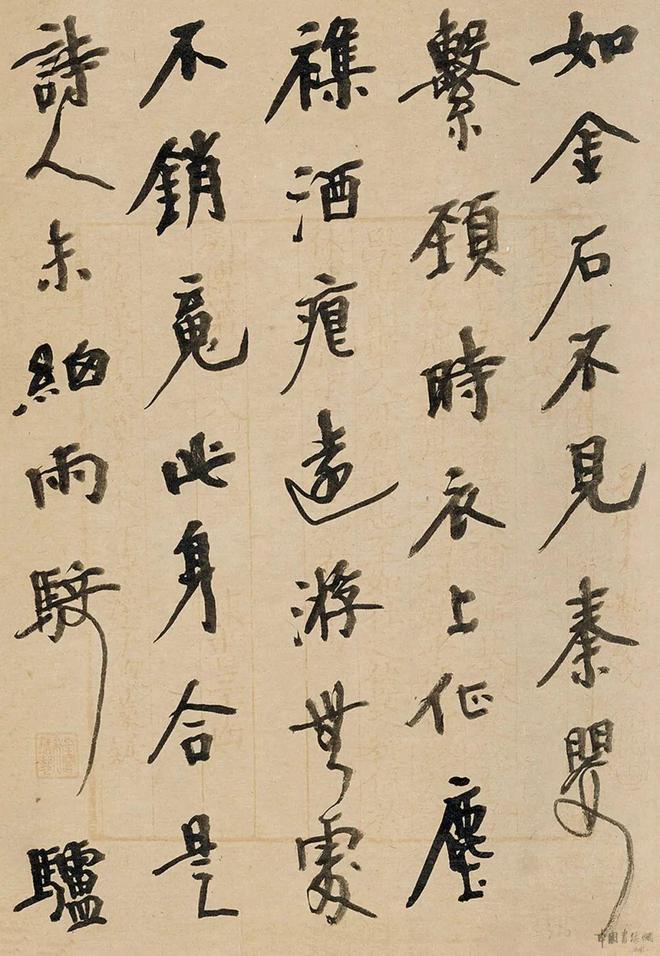 如金石不見秦嬰
繫頸時衣上征塵
襍酒痕遠游無處
不銷魂此身合是
詩人未細雨騎驢